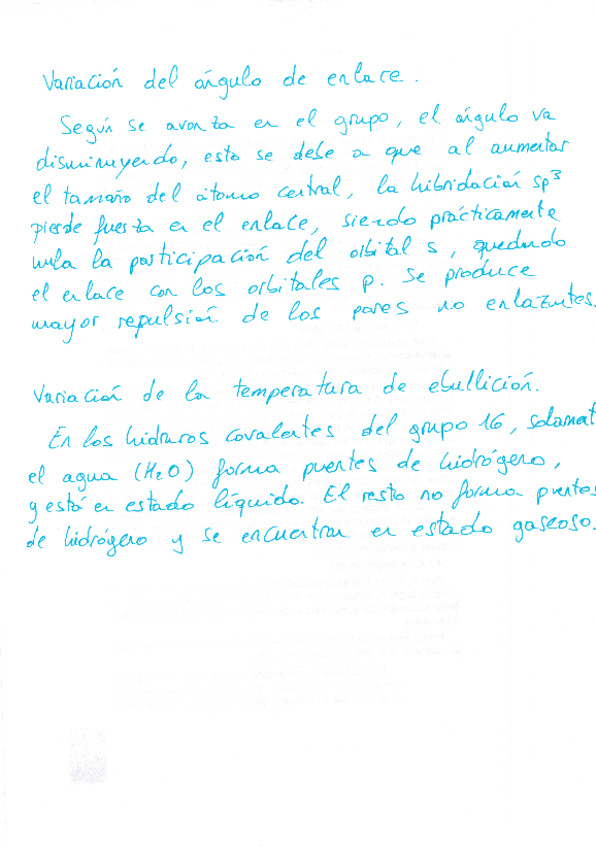 Variación del ángulo de enlace.
Según se avanza en el grupo, el ángulo va
disminuyendo, esto se debe a que al aumentar
el tamaño del átomo central, la hibridación sp³
pierde fuerza en el enlace, siendo prácticamente
nula la participación del orbital s, quedando
el enlace con los orbitales p. Se produce
mayor repulsión de los pares no enlazantes.
Variación de la temperatura de ebullición.
En los hidruros covalentes del grupo 16, solament
el agua (H₂O) forma puentes de hidrógeno,
y está en estado líquido. El resto no forma puentes
de hidrógeno y se encuentran en estado gaseoso.